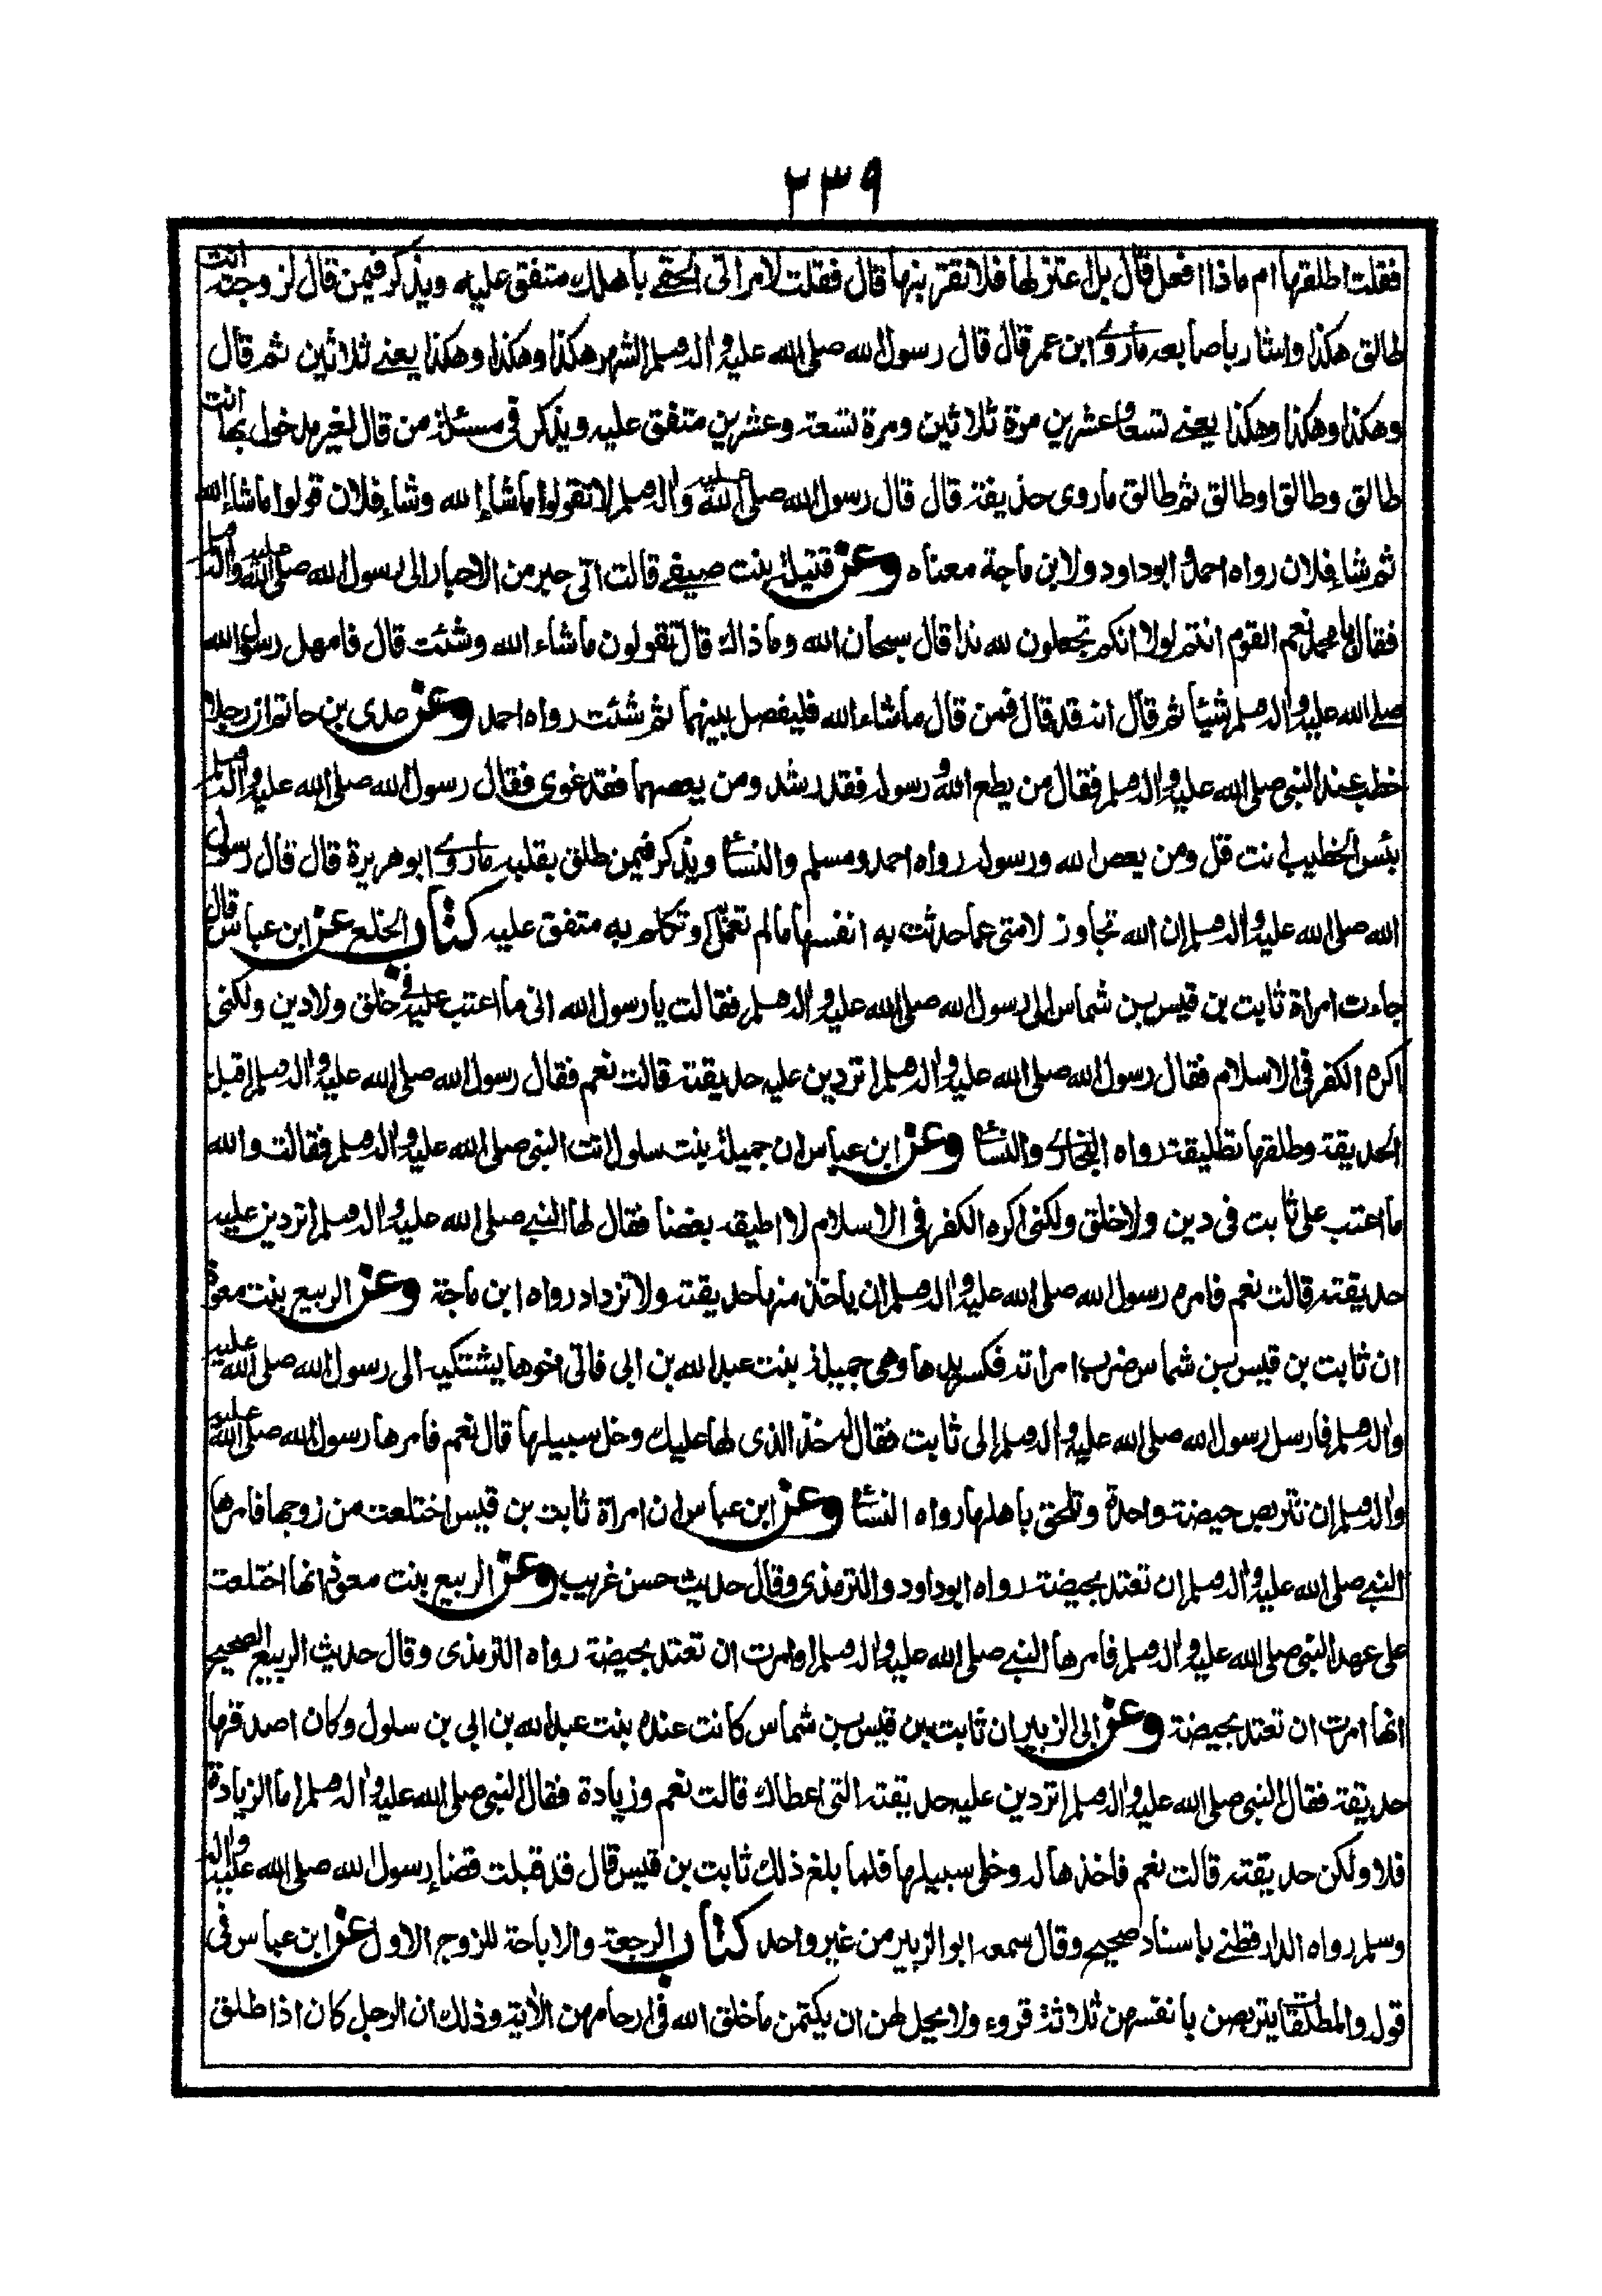 ٢٣٩
فقلت اطلقها ام ماذا افعل قال بل اعتزلها فلا تقربنها قال فقلت لامراتى الحقى باهلك متفق عليه ويذكر فيمن قال لزوجته انت
طالق هكذا واشار باصابعه ماروى ابن عمر قال قال رسول الله صلى الله عليه واله وسلم الشهر هكذا وهكذا وهكذا يعنى ثلاثين ثم قال
وهكذا وهكذا وهكذا يعنى تسعا وعشرين مرة ثلاثين ومرة تسعة وعشرين متفق عليه ويذكر فى مسئلة من قال لغير مدخول بها انت
طالق وطالق اوطالق ثم طالق ماروى حذيفة قال قال رسول الله صلى الله عليه واله وسلم لا تقولوا ماشاء الله وشاء فلان قولوا ماشاء الله
ثم شاء فلان رواه احمد وابوداود ولابن ماجة معناه وعن قتيلة بنت صيفى قالت اتى حبر من الاحبار الى رسول الله صلى الله عليه واله وسلم
فقال يا محمد نعم القوم انتم لولا انكم تجعلون لله ندا قال سبحان الله وما ذاك قال تقولون ماشاء الله وشئت قال فامهل رسول الله
صلى الله عليه واله وسلم شيئا ثم قال انه قد قال فمن قال ماشاء الله فليفصل بينهما ثم شئت رواه احمد وعن عدى بن حاتم ان رجلا
خطب عند النبى صلى الله عليه واله وسلم فقال من يطع الله ورسوله فقد رشد ومن يعصهما فقد غوى فقال رسول الله صلى الله عليه واله وسلم
بئس الخطيب انت قل ومن يعص الله ورسوله رواه احمد ومسلم والنسائى ويذكر فيمن طلق بقلبه ماروى ابوهريرة قال قال رسول
الله صلى الله عليه واله وسلم ان الله تجاوز لامتى عما حدثت به انفسها مالم تعمل او تكلم به متفق عليه كتاب الخلع عن ابن عباس قال
جاءت امراة ثابت بن قيس بن شماس الى رسول الله صلى الله عليه واله وسلم فقالت يا رسول الله انى ما اعتب عليه فى خلق ولا دين ولكنى
اكره الكفر فى الاسلام فقال رسول الله صلى الله عليه واله وسلم اتردين عليه حديقته قالت نعم فقال رسول الله صلى الله عليه واله وسلم اقبل
الحديقة وطلقها تطليقة رواه البخارى والنسائى وعن ابن عباس ان جميلة بنت سلول اتت النبى صلى الله عليه واله وسلم فقالت والله
ما اعتب على ثابت فى دين ولا خلق ولكنى اكره الكفر فى الاسلام لا اطيقه بغضا فقال لها النبى صلى الله عليه واله وسلم اتردين عليه
حديقته قالت نعم فامره رسول الله صلى الله عليه واله وسلم ان ياخذ منها حديقته ولا تزداد رواه ابن ماجة وعن الربيع بنت معوذ
ان ثابت بن قيس بن شماس ضرب امراته فكسر يدها وهى جميلة بنت عبد الله بن ابى فاتى اخوها يشتكيه الى رسول الله صلى الله عليه
واله وسلم فارسل رسول الله صلى الله عليه واله وسلم الى ثابت فقال له خذ الذى لها عليك وخل سبيلها قال نعم فامرها رسول الله صلى الله عليه
واله وسلم ان تتربص حيضة واحدة وتلحق باهلها رواه النسائى وعن ابن عباس ان امراة ثابت بن قيس اختلعت من زوجها فامرها
النبى صلى الله عليه واله وسلم ان تعتد بحيضة رواه ابوداود والترمذى وقال حديث حسن غريب وعن الربيع بنت معوذ انها اختلعت
على عهد النبى صلى الله عليه واله وسلم فامرها النبى صلى الله عليه واله وسلم اوامرت ان تعتد بحيضة رواه الترمذى وقال حديث الربيع الصحيح
انها امرت ان تعتد بحيضة وعن ابى الزبير ان ثابت بن قيس بن شماس كانت عنده بنت عبد الله بن ابى بن سلول وكان اصدقها
حديقة فقال النبى صلى الله عليه واله وسلم اتردين عليه حديقته التى اعطاك قالت نعم وزيادة فقال النبى صلى الله عليه واله وسلم اما الزيادة
فلا ولكن حديقته قالت نعم فاخذها له وخلى سبيلها فلما بلغ ذلك ثابت بن قيس قال قد قبلت قضاء رسول الله صلى الله عليه واله
وسلم رواه الدارقطنى باسناد صحيح وقال سمعه ابوالزبير من غير واحد كتاب الرجعة والاباحة للزوج الاول عن ابن عباس فى
قوله والمطلقات يتربصن بانفسهن ثلاثة قروء ولا يحل لهن ان يكتمن ماخلق الله فى ارحامهن الآية وذلك ان الرجل كان اذا طلق